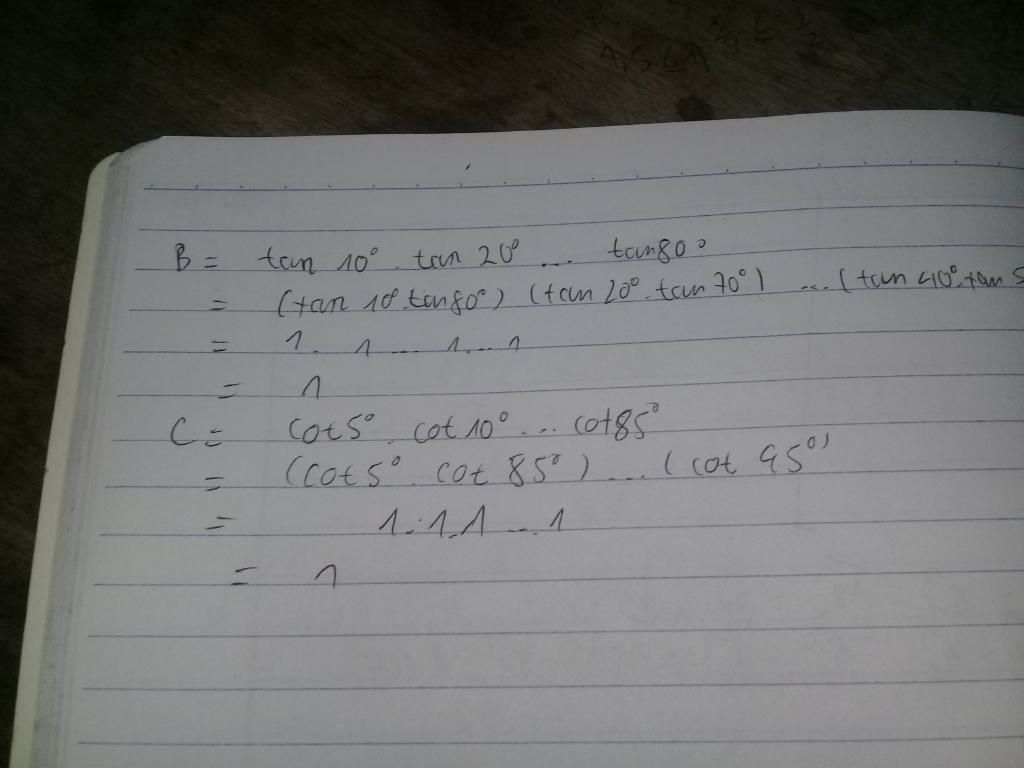 B = tan 10° . tan 20° ... tan80°
= (tan 10°.tan80°) (tan 20°.tan 70°) ... (tan 40°.tan 5
= 1. 1 ... 1 ... 1
= 1
C = cot5° . cot 10° ... cot85°
= (cot5° . cot 85°) ... (cot 45°)
= 1.1.1 ... 1
= 1